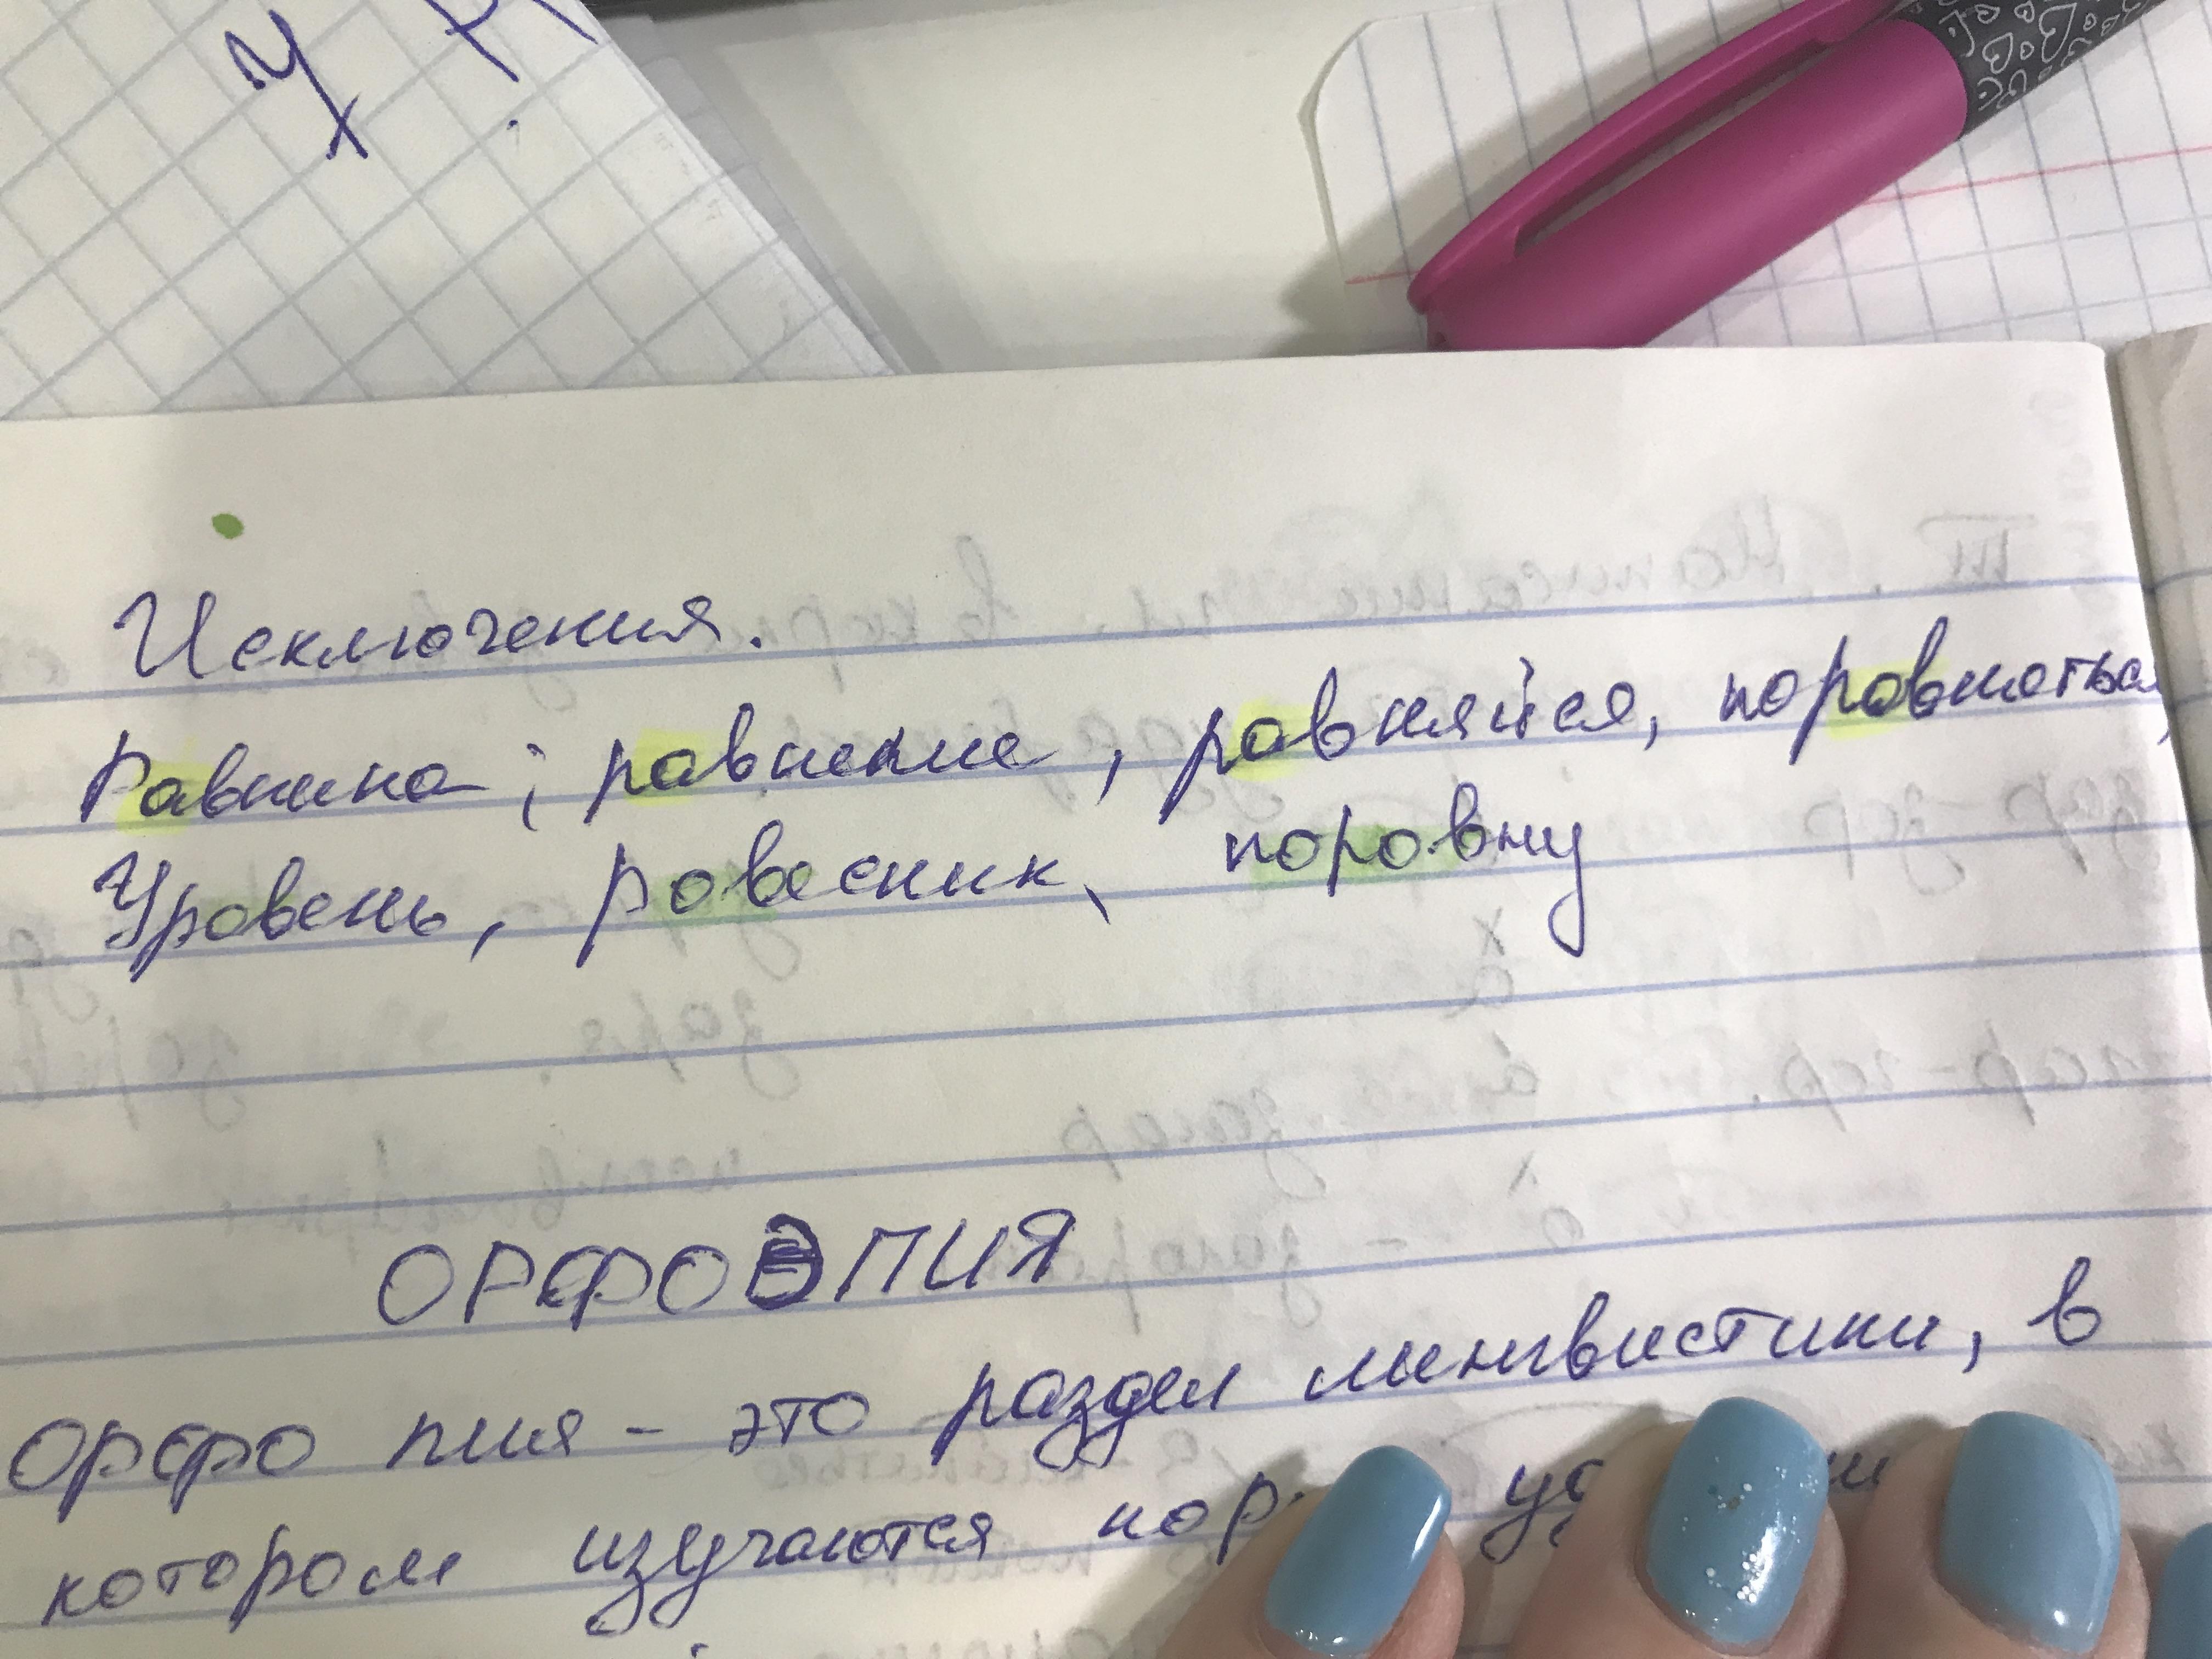 У Р
Исключения.
Равнина; равнение, равняйся, поровняться,
Уровень, ровесник, поровну
ОРФОЭПИЯ
Орфо пия - это раздел лингвистики, в
котором изучаются